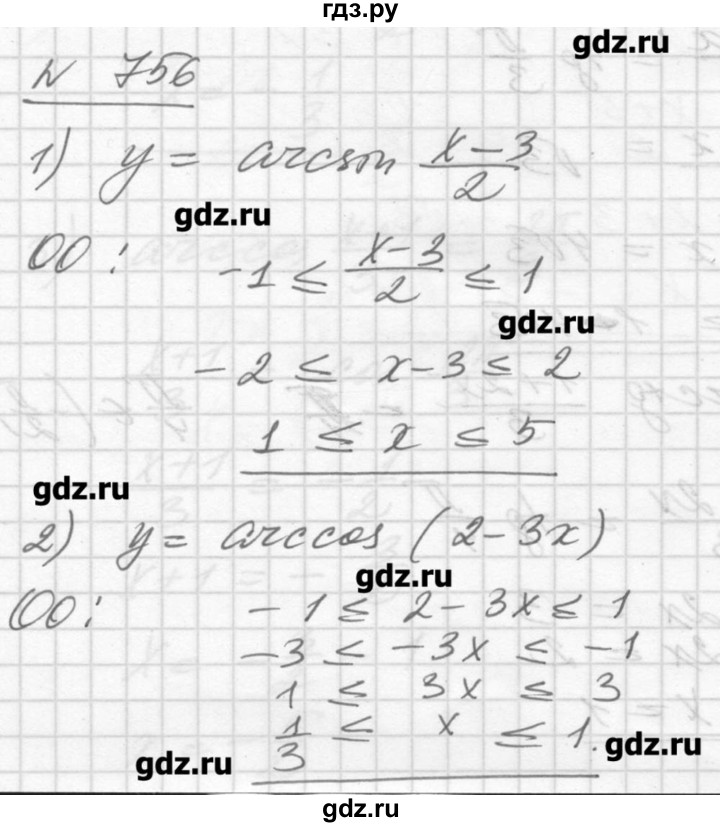 гдз.ру
gdz.ru
N 756
1) y = arcsin (x-3)/2
gdz.ru
OO: -1 ≤ (x-3)/2 ≤ 1
gdz.ru
-2 ≤ x-3 ≤ 2
1 ≤ x ≤ 5
gdz.ru
2) y = arccos (2-3x)
gdz.ru
OO: -1 ≤ 2-3x ≤ 1
-3 ≤ -3x ≤ -1
1 ≤ 3x ≤ 3
1/3 ≤ x ≤ 1.
gdz.ru
gdz.ru
gdz.ru